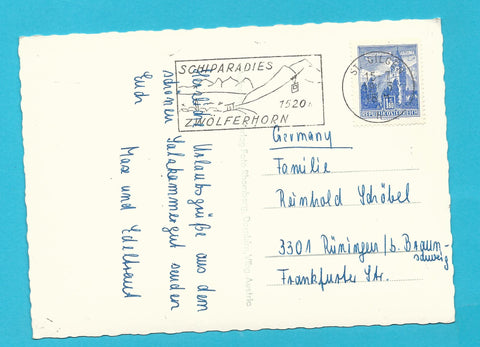 SCHIPARADIES
1520
ZWÖLFERHORN
ST. GILGEN
15
Herzliche Urlaubsgrüße aus dem
schönen Salzkammergut senden
Euch
Max und Edeltraud
Germany
Familie
Reinhold Schöbel
3301 Rüningen/b. Braun-
schweig
Frankfurter Str.
Austria